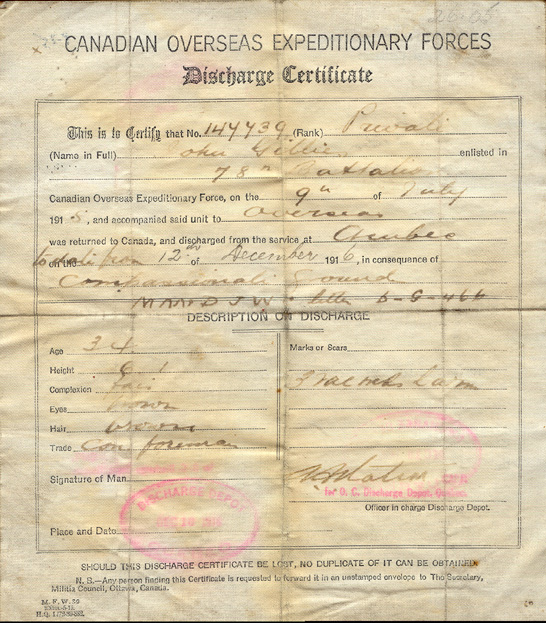 CANADIAN OVERSEAS EXPEDITIONARY FORCES
Discharge Certificate
This is to Certify that No. 147739 (Rank) Private
(Name in Full) John Gillie enlisted in
78th Battalion
Canadian Overseas Expeditionary Force, on the 9th of July
191 5, and accompanied said unit to Overseas
was returned to Canada, and discharged from the service at Quebec
to date from on the 12th of December 191 6, in consequence of
Compassionate Ground
letter
DESCRIPTION ON DISCHARGE
Age 34
Height 6 1
Complexion fair
Eyes brown
Hair brown
Trade Con foreman
Marks or Scars
3 vac marks L arm
Signature of Man
Place and Date
DISCHARGE DEPOT
DEC
for O. C. Discharge Depot, Quebec.
Officer in charge Discharge Depot.
SHOULD THIS DISCHARGE CERTIFICATE BE LOST, NO DUPLICATE OF IT CAN BE OBTAINED.
N. B.—Any person finding this Certificate is requested to forward it in an unstamped envelope to The Secretary,
Militia Council, Ottawa, Canada.
M. F. W. 39